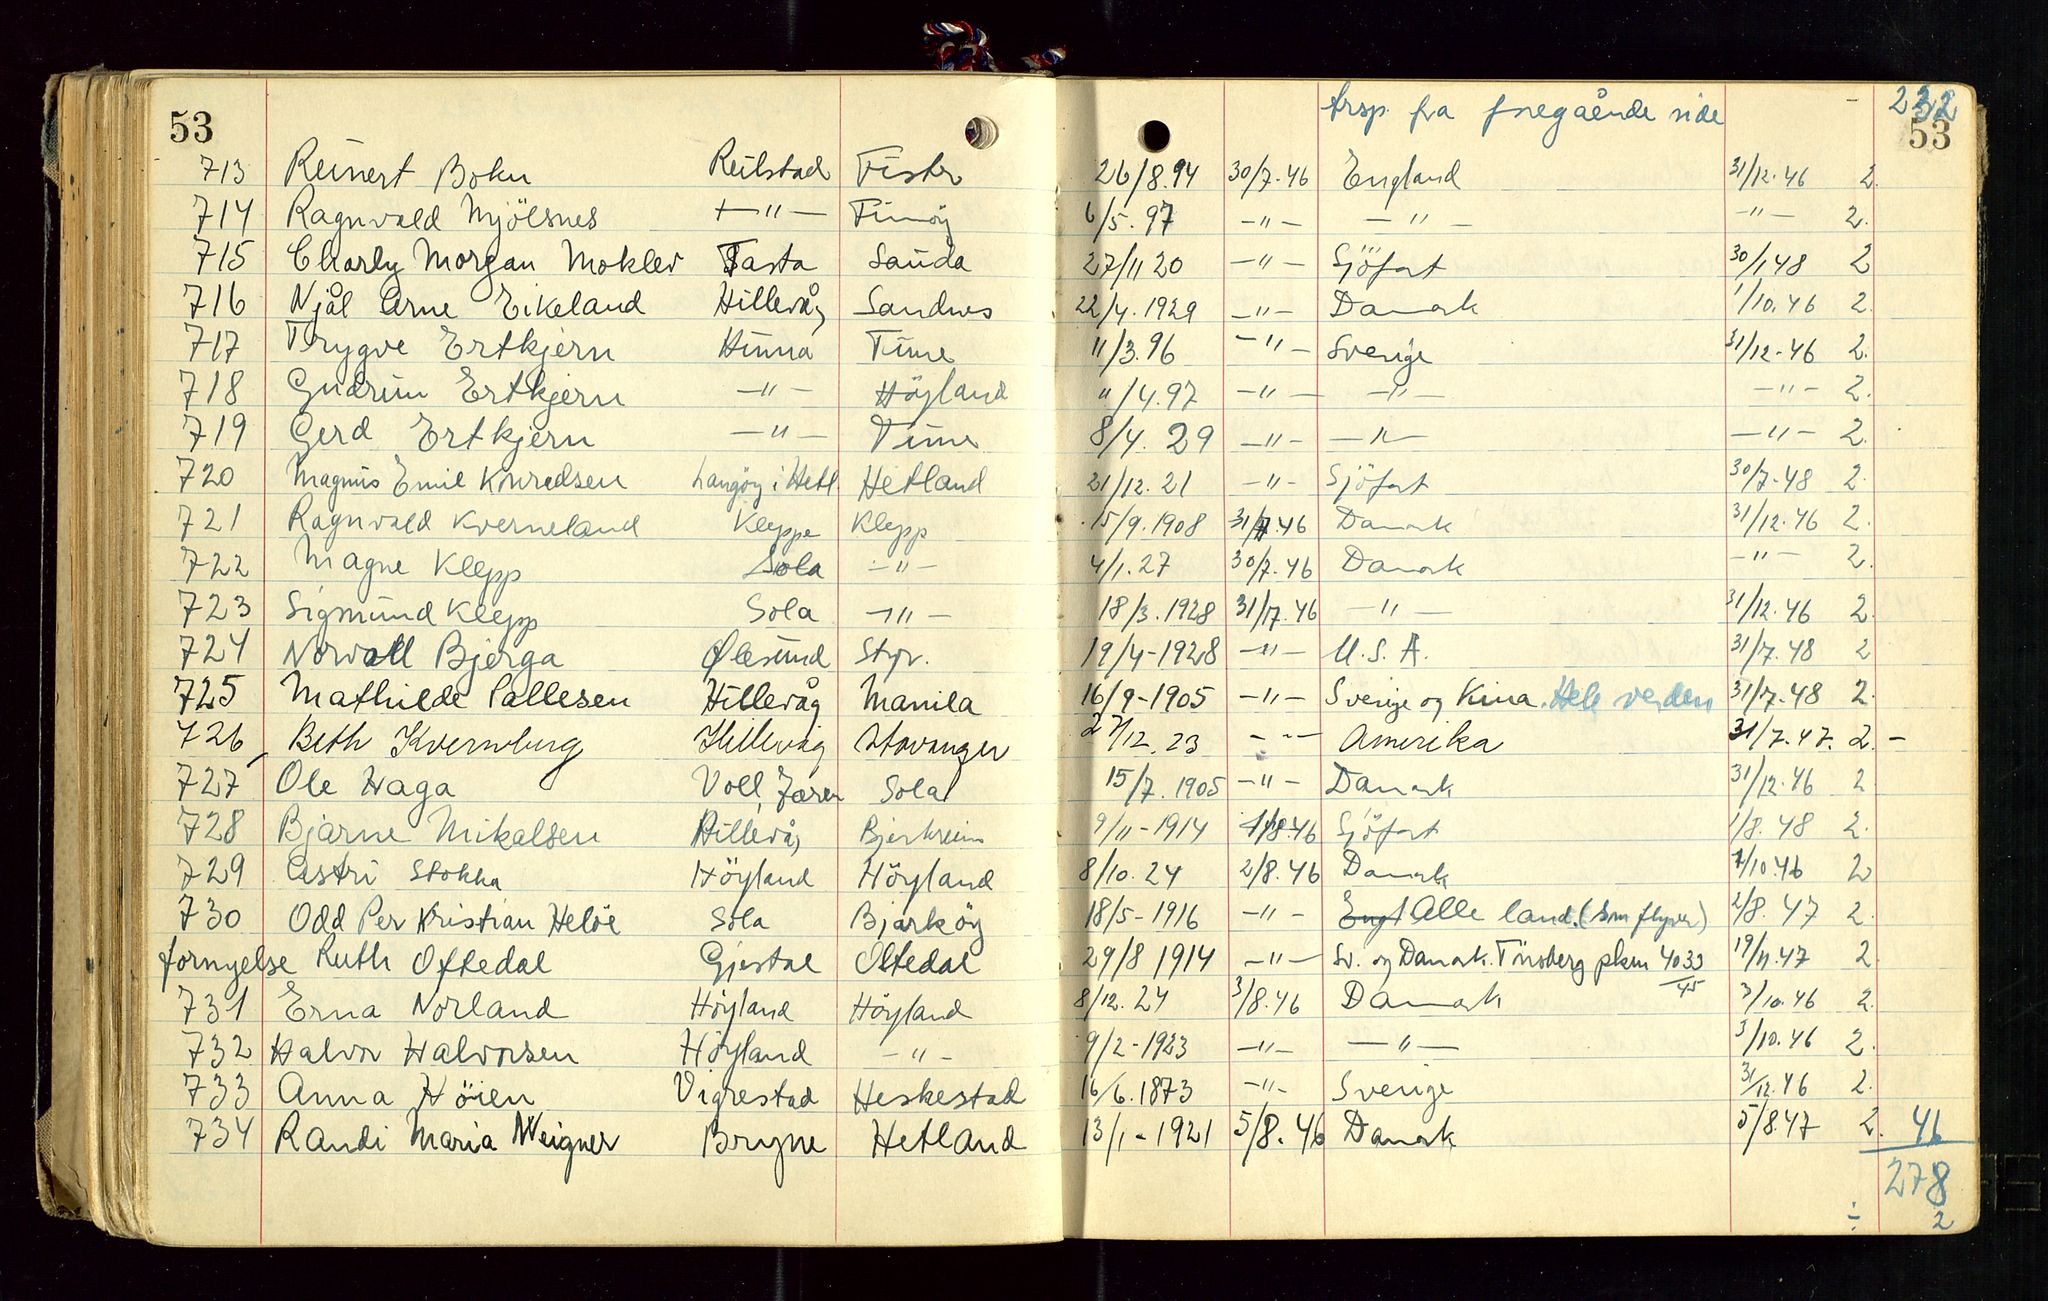 53 trsp. fra foregående side 232 53
713 Reinert Bohn Reilstad Fister 26/8.94 30/7.46 England 31/12.46 2.
714 Ragnvald Mjölsnes —"— Finnöy 6/5.97 —"— —"— —"— 2.
715 Charly Morgan Moklev Tasta Sauda 27/11 20 —"— Sjöfart 30/1 48 2
716 Njål Arne Eikeland Hillevåg Sandnes 22/4.1929 —"— Danmark 1/10.46 2.
717 Trygve Ertkjern Hinna Time 11/3.96 —"— Sverige 31/12.46 2.
718 Gudrun Ertkjern —"— Höyland 11/4.97 —"— —"— —"— 2.
719 Gerd Ertkjern —"— Time 8/4.29 —"— —"— —"— 2.
720 Magnus Emil Konradsen Langöy i Hetl. Hetland 21/12.21 —"— Sjöfart 30/7.48 2.
721 Ragnvald Kverneland Kleppe Klepp 15/9.1908 31/7.46 Danmark 31/12.46 2.
722 Magne Klepp Sola —"— 4/1.27 30/7.46 Danmark —"— 2.
723 Sigmund Klepp Sola —"— 18/3.1928 31/7.46 —"— 31/12.46 2.
724 Norvall Bjerga Ølesund Styv. 19/4-1928 —"— U.S.A. 31/7.48 2
725 Mathilde Pallesen Hillevåg Manila 16/9-1905 —"— Sverige og Kina. Hele verden 31/7.48 2.
726 Beth Kvernberg Hillevåg Stavanger 27/12.23 —"— Amerika 31/7.47. 2. —
727 Ole Haga Voll, Jæren Sola 15/7.1905 —"— Danmark 31/12.46 2
728 Bjarne Mikalsen Hillevåg Bjerkreim 9/11-1914 1/8.46 Sjöfart 1/8.48 2.
729 Astri Stokka Höyland Höyland 8/10.24 2/8.46 Danmark 1/10.46 2
730 Odd Per Kristian Helöe Sola Bjarköy 18/5-1916 —"— Engl Alle land. (som flyver) 2/8.47 2.
fornyelse Ruth Oftedal Gjestal Oltedal 29/8 1914 —"— Sv. og Danmark. Tönsberg pkm 4033/45 19/11.47 2.
731 Erna Norland Höyland Höyland 8/12.24 3/8.46 Danmark 3/10.46 2.
732 Halvor Halvorsen Höyland —"— 9/2-1923 —"— —"— 3/10.46 2.
733 Anna Höien Vigrestad Heskestad 16/6.1873 —"— Sverige 31/12.46 2.
734 Randi Maria Weigner Bryne Hetland 13/1-1921 5/8.46 Danmark 5/8 47 2. 46
278
÷ 2